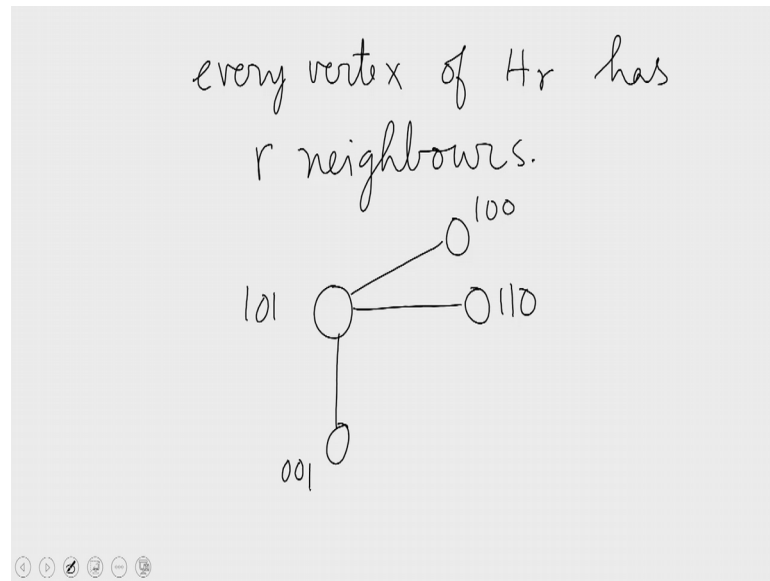 every vertex of Hr has
r neighbours.
100
101
110
001